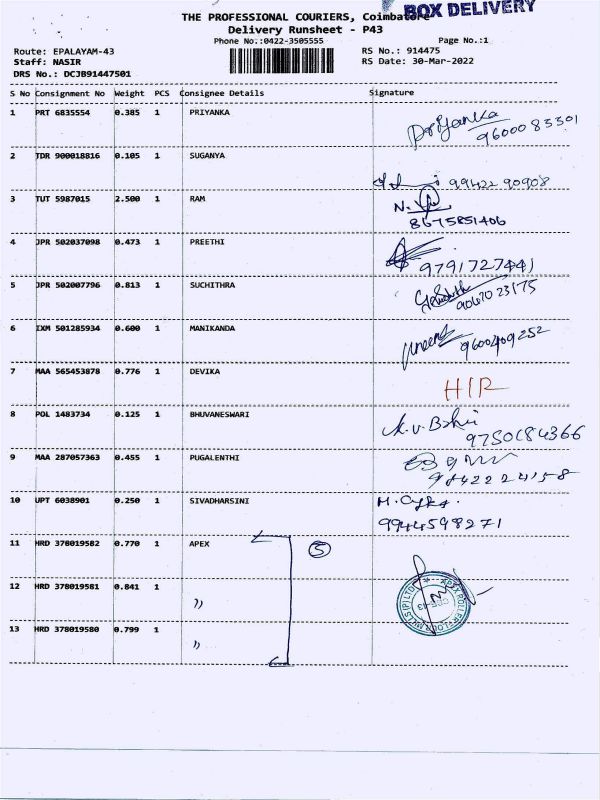 BOX DELIVERY
THE PROFESSIONAL COURIERS, Coimbatore
Delivery Runsheet - P43
Phone No.:0422-3505555 Page No.:1
Route: EPALAYAM-43 RS No.: 914475
Staff: NASIR RS Date: 30-Mar-2022
DRS No.: DCJB91447501
S No Consignment No Weight PCS Consignee Details Signature
1 PRT 6835554 0.385 1 PRIYANKA
Priyanka
9600083301
2 TDR 900018816 0.105 1 SUGANYA
99422 90908
3 TUT 5987015 2.500 1 RAM
N.
8675851406
4 JPR 502037098 0.473 1 PREETHI
9791727441
5 JPR 502007796 0.813 1 SUCHITHRA
9067023175
6 IXM 501285934 0.600 1 MANIKANDA
9600409252
7 MAA 565453878 0.776 1 DEVIKA
HIR
8 POL 1483734 0.125 1 BHUVANESWARI
9750184366
9 MAA 287057363 0.455 1 PUGALENTHI
9842224158
10 UPT 6038901 0.250 1 SIVADHARSINI
9944598271
11 HRD 370019582 0.770 1 APEX
5
12 HRD 370019581 0.841 1 "
13 HRD 370019580 0.799 1 "
APEX ROLLER FLOUR MILLS (P) LTD
CBE-43